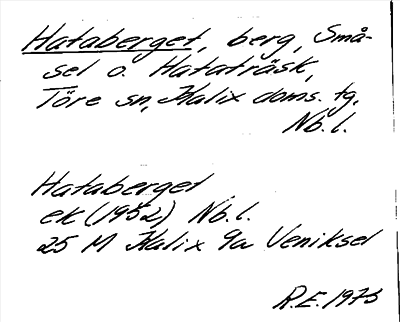 Hataberget, berg, Små-
sel o. Hataträsk,
Töre sn, Kalix doms. tg.
Nb. l.
Hataberget
ek (1952) Nb. l.
25 M Kalix 9a Veniksel
R.E. 1975